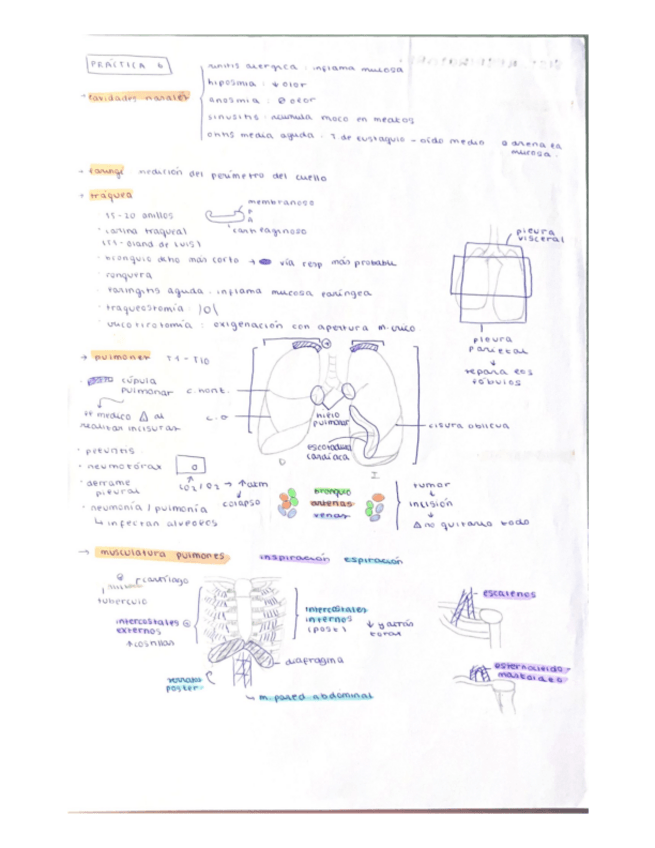 PRÁCTICA 6
→ cavidades nasales
rinitis alérgica : inflama mucosa
hiposmia : ↓ olor
anosmia : ∅ olor
sinusitis : acumula moco en meatos
otitis media aguda : T de eustaquio - oído medio
mucosa.
→ laringe medición del perímetro del cuello
→ tráquea
15-20 anillos
membranoso
P
A
cartilaginoso
· carina traqueal
· bronquio dcho más corto → vía resp más probable
· ronquera
· faringitis aguda : inflama mucosa faríngea
· traqueostomía : )o(
: oxigenación con apertura
pleura visceral
pleura parietal
↓
separa los lóbulos
→ pulmones T1 - T10
· cúpula pulmonar
c. hont.
c. o
médico △ al realizar incisuras
hilio pulmonar
escotadura cardíaca
D
I
cisura oblicua
· pleuritis
· neumotórax
· derrame pleural
→ ↑ atm
↓
colapso
· neumonía / pulmonía
↳ infectan alveolos
bronquio
arterias
venas
tumor
↓
incisión
↓
△ no quitarlo todo
→ musculatura pulmones
inspiración espiración
cartílago
tubérculo
intercostales externos
↑ costillas
intercostales internos
(post)
diafragma
poster.
↳ m. pared abdominal
escalenos
esternocleidomastoideo